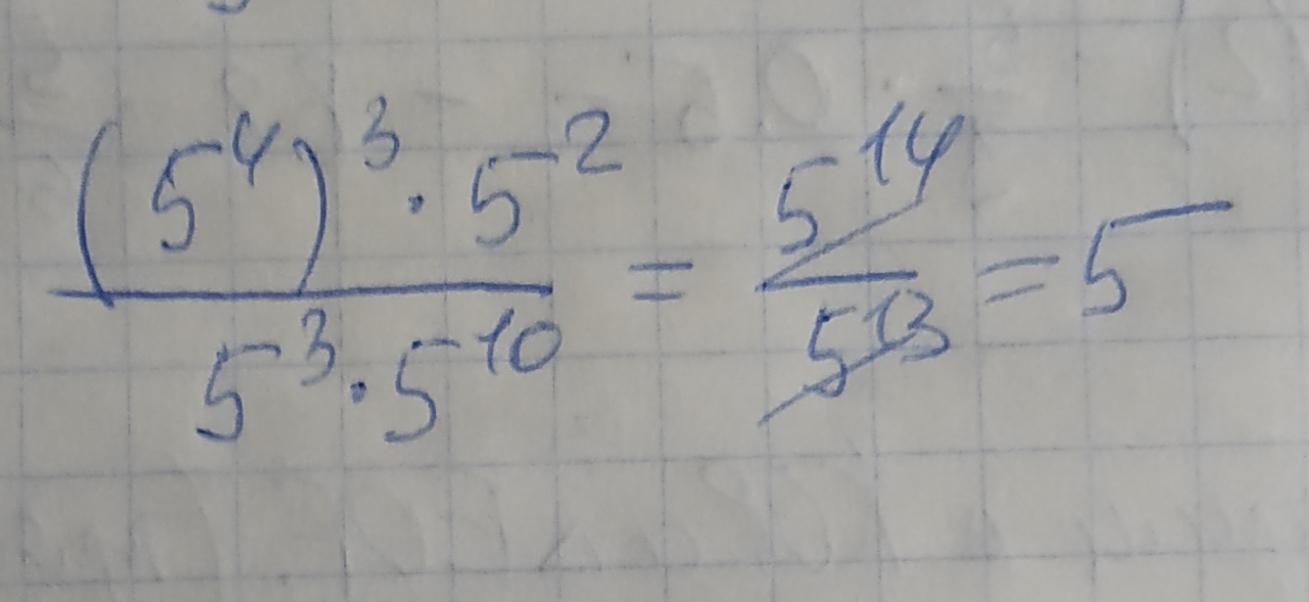 (5^4)^3 · 5^2 / 5^3 · 5^10 = 5^14 / 5^13 = 5